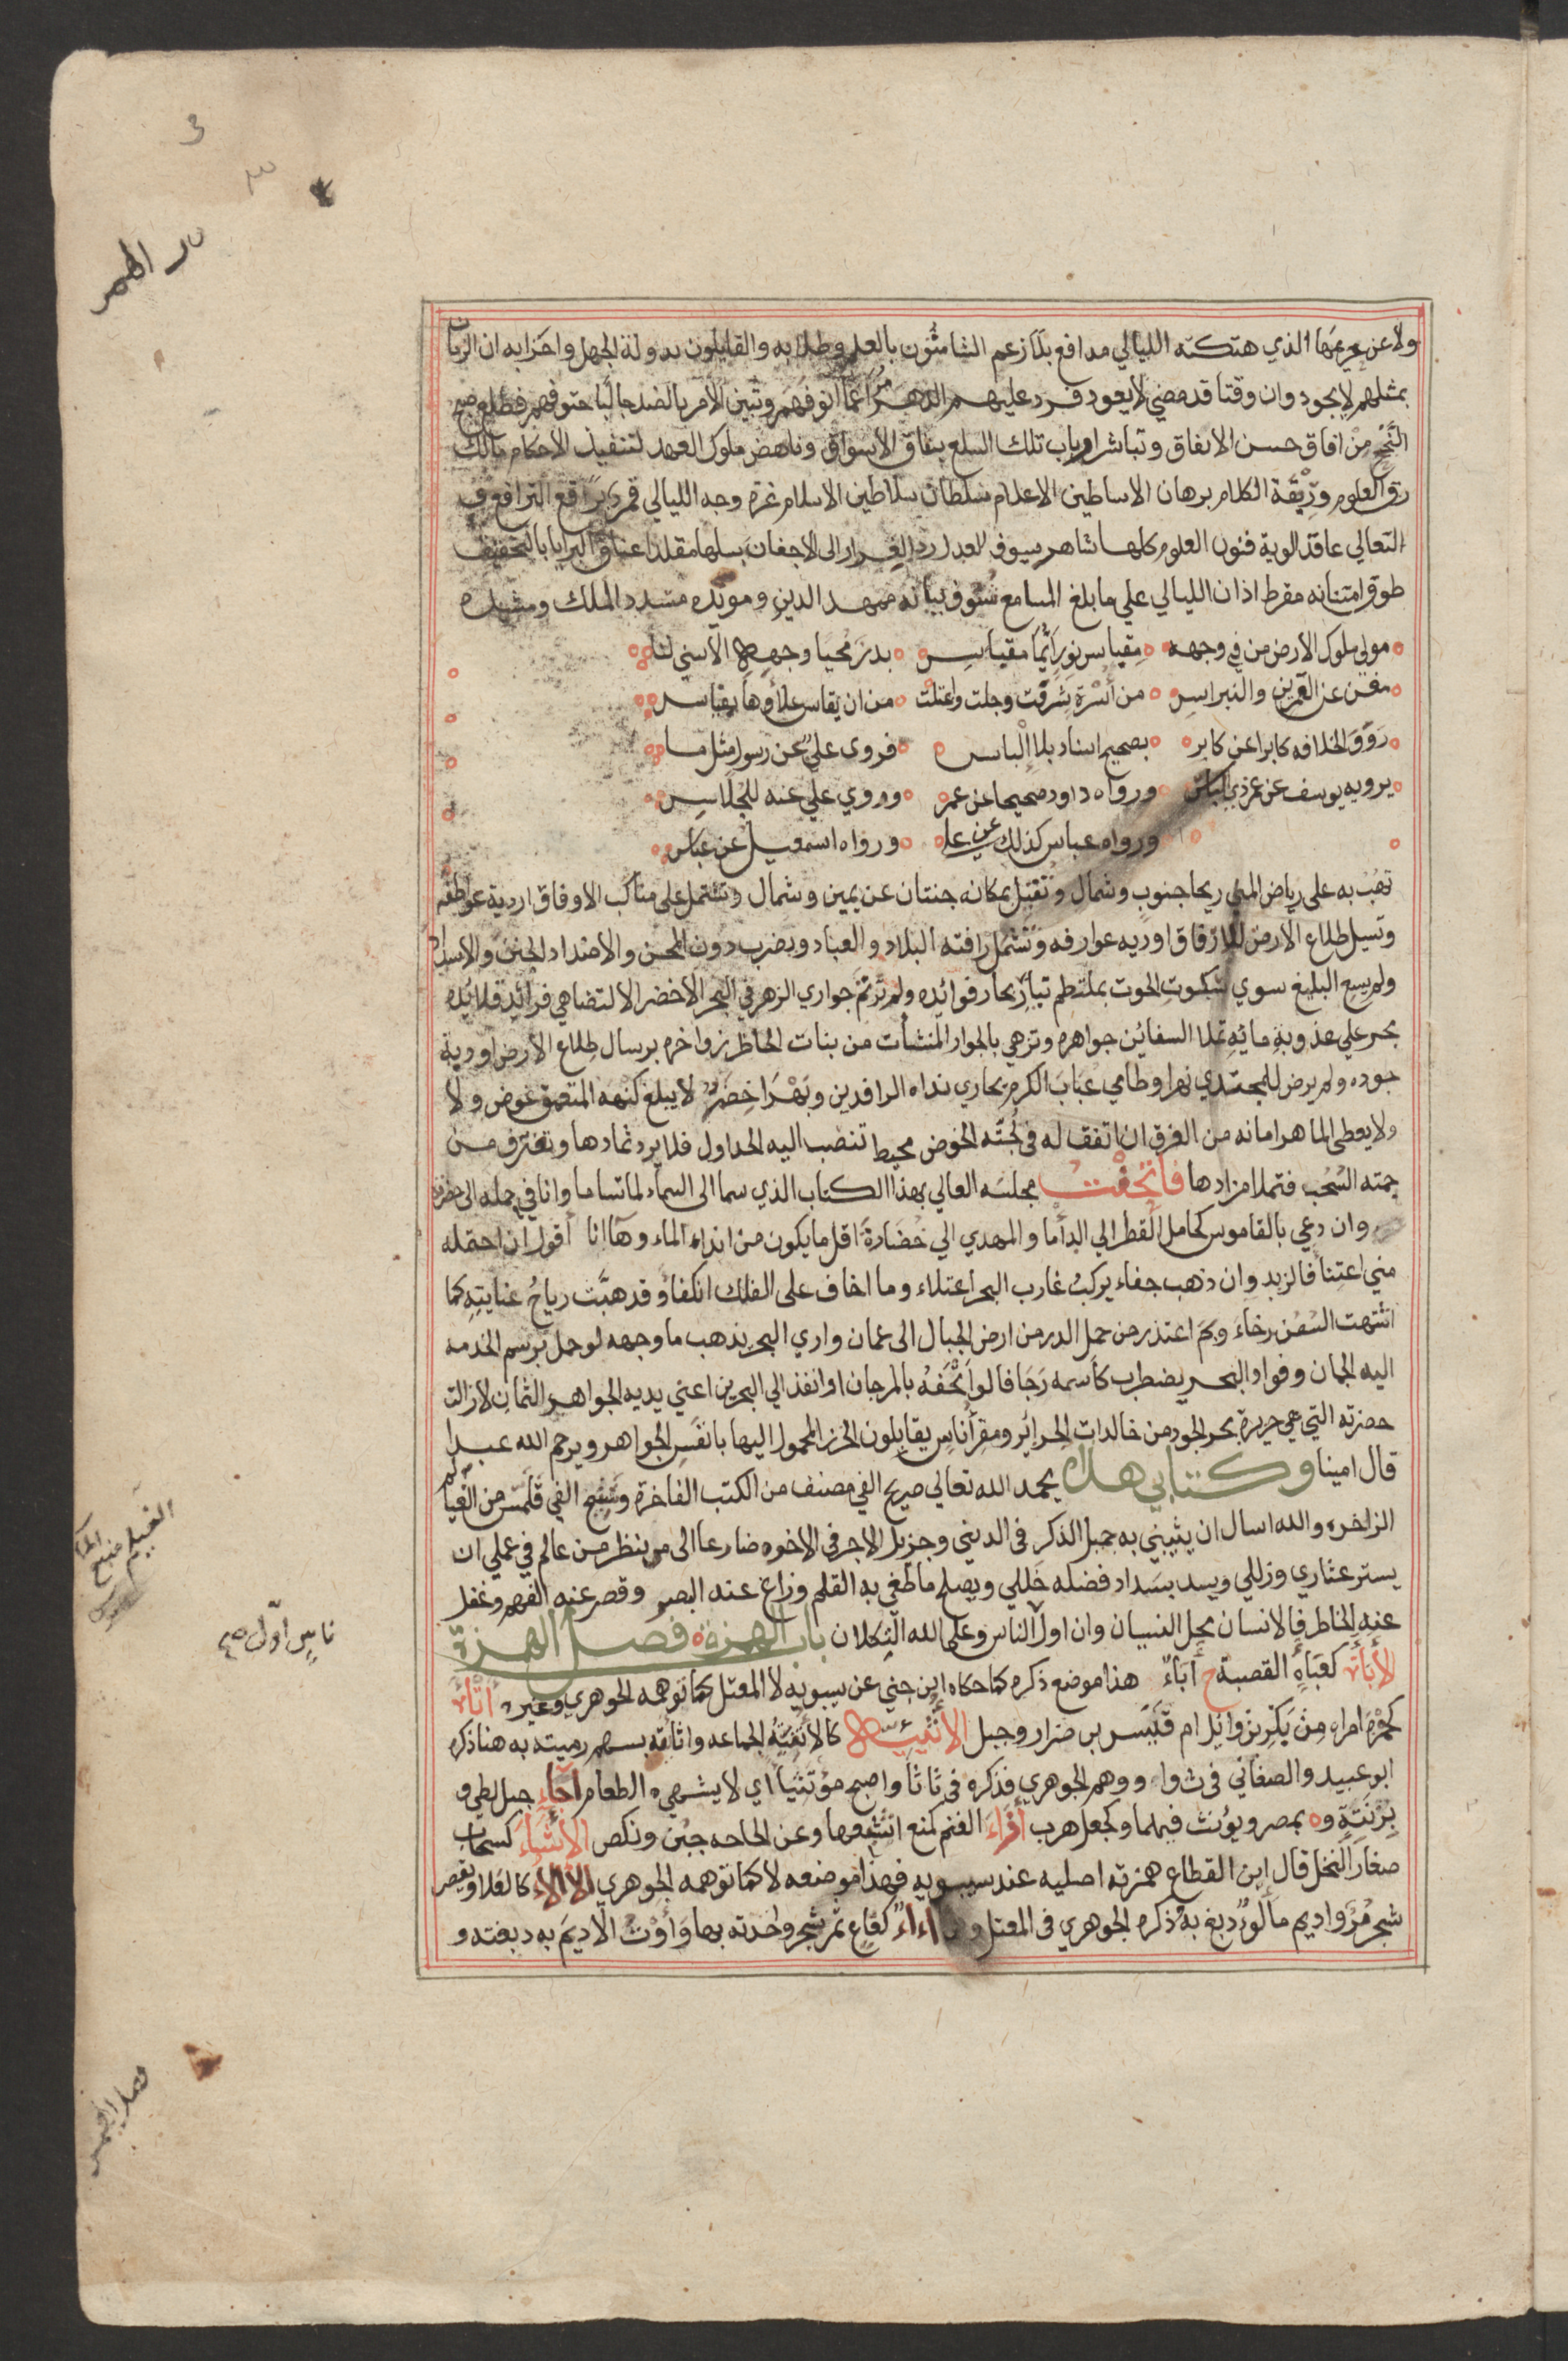 ولا عن حريمها الذي هتكته الليالي مدافع بل زعم الشامتون بالعلم وطلابه والقايلون بدولة الجهل واحزابه ان الزمان
بمثلهم لا يجود وان وقتا قد مضي لا يعود فرد عليهم الدهر مراغما انوفهم وتبين الامر بالضد جالبا حتوفهم فطلع صبح
النجح من افاق حسن الاتفاق وتباشر ارباب تلك السلع بنفاق الاسواق وناهض ملوك العهد لتنفيذ الاحكام مالك
رق العلوم وربقة الكلام برهان الاساطين الاعلام سلطان سلاطين الاسلام غرة وجه الليالي قمر براقع الترافع و
التعالي عاقد الوية فنون العلوم كلها شاهر سيوف العدل رد الغرار الى الاجفان بسلها مقلد اعناق البرايا بالتحقيق
طوق امتنانه مقرط اذان الليالي علي ما بلغ المسامع شنوف بيانه ممهد الدين ومويده مسدد الملك ومشيده
مولي ملوك الارض من في وجهه مقباس نور ايما مقباس بدر محيا وجهه الاسني لنا
مغن عن القمرين والنبراس من اسرة شرفت وجلت واعتلت من ان يقاس علاؤها بقياس
رووا الخلافه كابرا عن كابر بصحيح اسناد بلا الباس فروى علي عن رسول مثل ما
يرويه يوسف عن عمر ذي الباس ورواه داود صحيحا عن عمر وروي علي عنه للجلاس
ورواه عباس كذلك عن علي ورواه اسمعيل عن عباس
تهب به على رياض المني ريحا جنوب وشمال وتقيل بمكانه جنتان عن يمين وشمال وتشتمل على مناكب الافاق اردية عواطفه
وتسيل طلاع الارض للارفاق اودية عوارفه وتشمل رافته البلاد والعباد ويضرب دون المحن والاضداد الجنن والاسداد
ولم يسع البليغ سوي سكوت الحوت بملتطم تيار بحار فوائده ولم ترتم جواري الزهر في البحر الاخضر الا لتضاهي فرائد قلائده
بحر علي عذوبة مائه تملا السفائن جواهره وتزهي بالجوار المنشأت من بنات الخاطر زواخره بر سال طلاع الارض اودية
جوده ولم يرض للمجتدي نهرا وطامي عباب الكرم يجاري نداه الرافدين وبهرا خضرم لا يبلغ كنهه المتعمق غوص ولا
ولا يعطى الماهر امانه من الغرق ان اتفق له في لجته الخوض محيط تنصب اليه الجداول فلا يرد ثمادها وتغترف من
جمته السحب فتملا مزادها فاتحفت مجلسه العالي بهذا الكتاب الذي سما الى السماء لما تساما وانا في حمله الى حضرته
وان دعي بالقاموس كحامل القطر الي الدأما والمهدي الي خضارة اقل ما يكون من انداء الماء وها انا اقول ان احتمله
مني اعتنأ فالزبد وان ذهب جفاء يركب غارب البحر اعتلاء وما اخاف على الفلك انكفأ وقد هبت رياح عنايته كما
اشتهت السفن رخاء وبم اعتذر من حمل الدر من ارض الجبال الى عمان واري البحر يذهب ما وجهه لو حمل برسم الخدمه
اليه الجمان وفواد البحر يضطرب كاسمه رجافا لو اتحفه بالمرجان او انفذ الي البحرين اعني يديه الجواهر الثمان لا زالت
حضرته التي هي جزيرة بحر الجود من خالدات الجزائر ومقر أناس يقابلون الخرز المحمول اليها بانفس الجواهر ويرحم الله عبدا
قال امينا وكتابي هذا بحمد الله تعالي صريح الفي مصنف من الكتب الفاخرة وسنيح الفي قلمس من العيالم
الزاخره والله اسال ان يثيبني به جميل الذكر في الدنيي وجزيل الاجر في الاخره ضارعا الى من ينظر من عالم في عملي ان
يستر عثاري وزللي ويسد بسداد فضله خللي ويصلح ما طغي به القلم وزاغ عنه البصر وقصر عنه الفهم وغفل
عنه الخاطر فالانسان محل النسيان وان اول الناس وعلى الله التكلان باب الهمزة فصل الهمزة
الأباة كعباة القصبة ج أباء هذا موضع ذكره كما حكاه ابن جني عن سيبويه لا المعتل كما توهمه الجوهري وغيره أتأة
كحمزة امراة من بكر بن وايل ام قيس بن ضرار وجبل الأثئية كالأثفية الجماعه واثاته بسهم رميته به هنا ذكره
ابو عبيد والصغاني في ث وا ووهم الجوهري فذكره في ثأثأ واصبح مؤتثيا اي لا يشتهي الطعام أجاء جبل لطي و
بزنته وه بمصر ويؤنث فيهما وكجعل هرب أزاء الغنم كمنع اشبعها وعن الحاجه جبن ونكص الأشاء كسحاب
صغار النخل قال ابن القطاع همزته اصليه عند سيبويه فهذا موضعه لا كما توهمه الجوهري الألاء كالعلا ويقصر
شجر مر واديم مألوء دبغ به وذكره الجوهري في المعتل وهما أاء كقاع ثمر شجر واحدته بهاء وأوت الاديم به دبغته و
باب اول ص